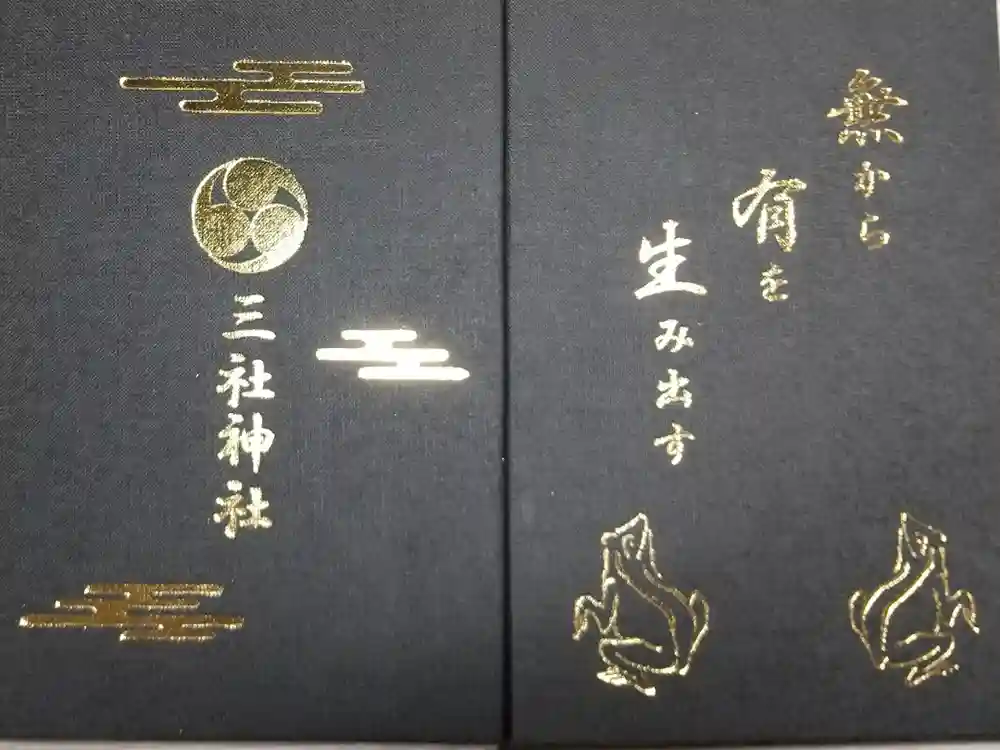 無から
有を
生み出す
三社神社